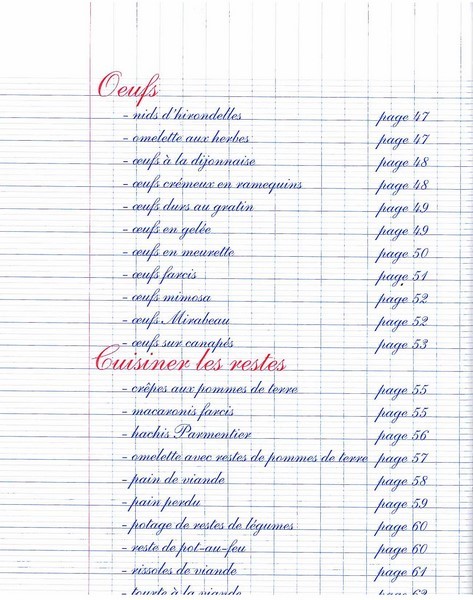 Oeufs
- nids d'hirondelles page 47
- omelette aux herbes page 47
- œufs à la dijonnaise page 48
- œufs crémeux en ramequins page 48
- œufs durs au gratin page 49
- œufs en gelée page 49
- œufs en meurette page 50
- œufs farcis page 51
- œufs mimosa page 52
- œufs Mirabeau page 52
- œufs sur canapés page 53
Cuisiner les restes
- crêpes aux pommes de terre page 55
- macaronis farcis page 55
- hachis Parmentier page 56
- omelette avec restes de pommes de terre page 57
- pain de viande page 58
- pain perdu page 59
- potage de restes de légumes page 60
- reste de pot-au-feu page 60
- rissoles de viande page 61
- tourte à la viande page 62